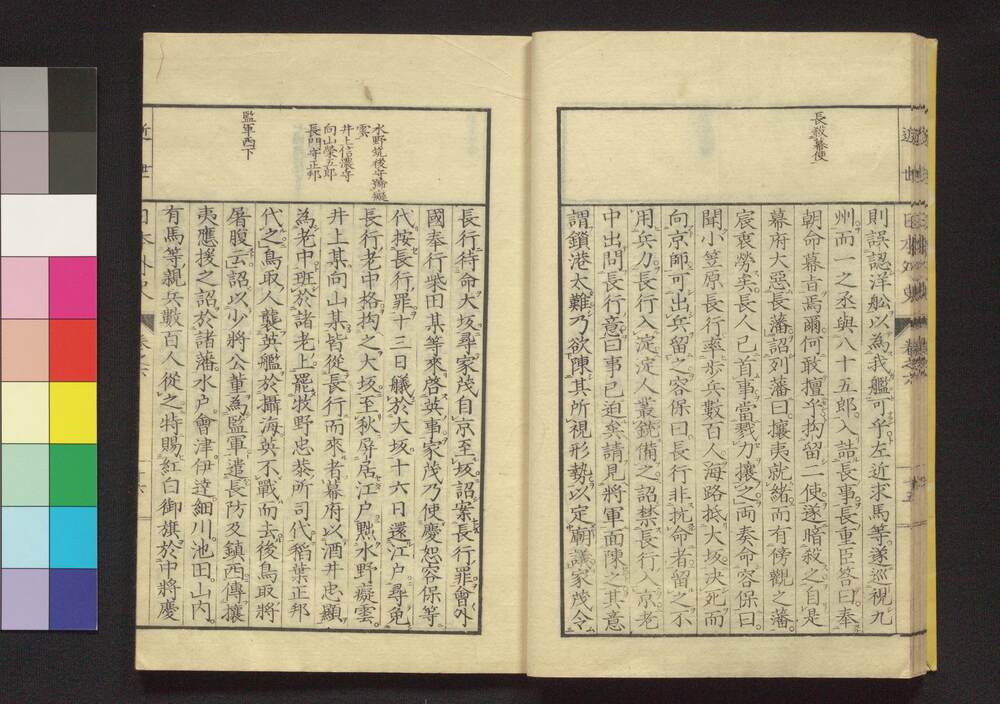 長殺幕使
則誤認洋船以為我艦可乎左近求馬等遂巡視九
州而一之丞與八十五郎入詰長事長重臣答曰奉
朝命幕旨焉爾何敢擅乎拘留二使遂暗殺之自是
幕府大惡長藩詔列藩曰攘夷就緒而有傍觀之藩
宸衷勞矣長人已首事當戮力攘之両奏命容保曰
聞小笠原長行率歩兵數百人海路抵大坂决死而
向京師可出兵留之容保曰長行非抗命者留之不
用兵力長行入淀淀人叢銃備之詔禁長行入京老
中出問長行意曰事已迫矣請見將軍面陳之其意
謂鎖港太難乃欲陳其所視形勢以定廟議家茂令
水野筑後守歸癡
雲
井上信濃守
向山榮五郎
長門守正邦
監軍西下
長行待命大坂尋家茂自京至坂詔案長行罪會外
國奉行柴田某等來啓英事家茂乃使慶恕容保等
代按長行罪十三日艤於大坂十六日還江戸尋免
長行老中格拘之大坂至秋屏居江戸黜水野癡雲
井上某向山某皆從長行而來者幕府以酒井忠顯
為老中班於諸老上罷牧野忠恭所司代稻葉正邦
代之鳥取人襲英艦於攝海英不戰而去後鳥取將
屠腹云詔以少將公董為監軍遣長防及鎮西傳攘
夷應援之詔於諸藩水戸會津伊達細川池田山内
有馬等親兵數百人從之特賜紅白御旗於中將慶
近世
日本外史